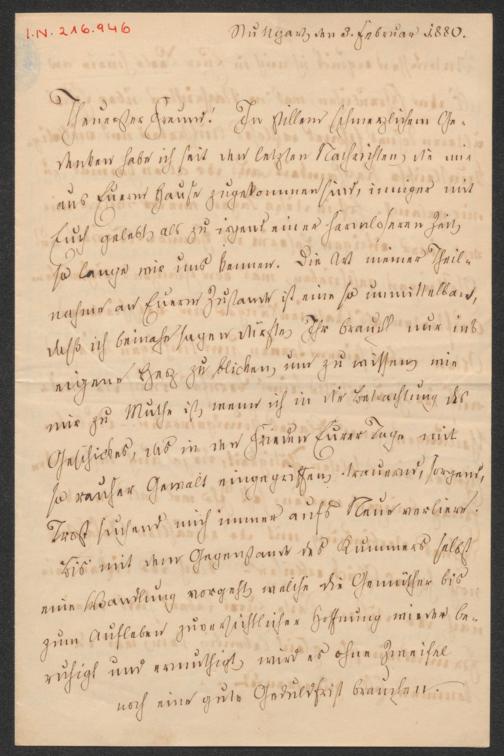 I.N. 216.946
Stuttgart, den 3. Februar 1880.
Theuerster Freund! In stillem schmerzlichem Ge-
denken habe ich seit den letzten Nachrichten, die mir
aus Eurem Hause zugekommen sind, inniger mit
Euch gelebt, als zu irgend einer harmloseren Zeit,
so lange wir uns kennen. Die Art meiner Theil-
nahme an Eurem Zustande ist eine so unmittelbare,
daß ich beinahe sagen dürfte, Ihr braucht nur ins
eigene Herz zu blicken, um zu wissen, wie
mir zu Muthe ist, wenn ich in die Betrachtung des
Geschickes, das in den Frieden Eurer Tage mit
so rauher Gewalt eingegriffen, trauernd, sorgend,
Trost suchend mich immer aufs Neue verliere.
Bis mit dem Gegenstande des Kummers selbst
eine Wandlung vorgeht, welche die Gemüther bis
zum Aufleben zuversichtlicher Hoffnung wieder be-
ruhigt und ermuthigt, wird es ohne Zweifel
noch eine gute Geduldfrist brauchen.